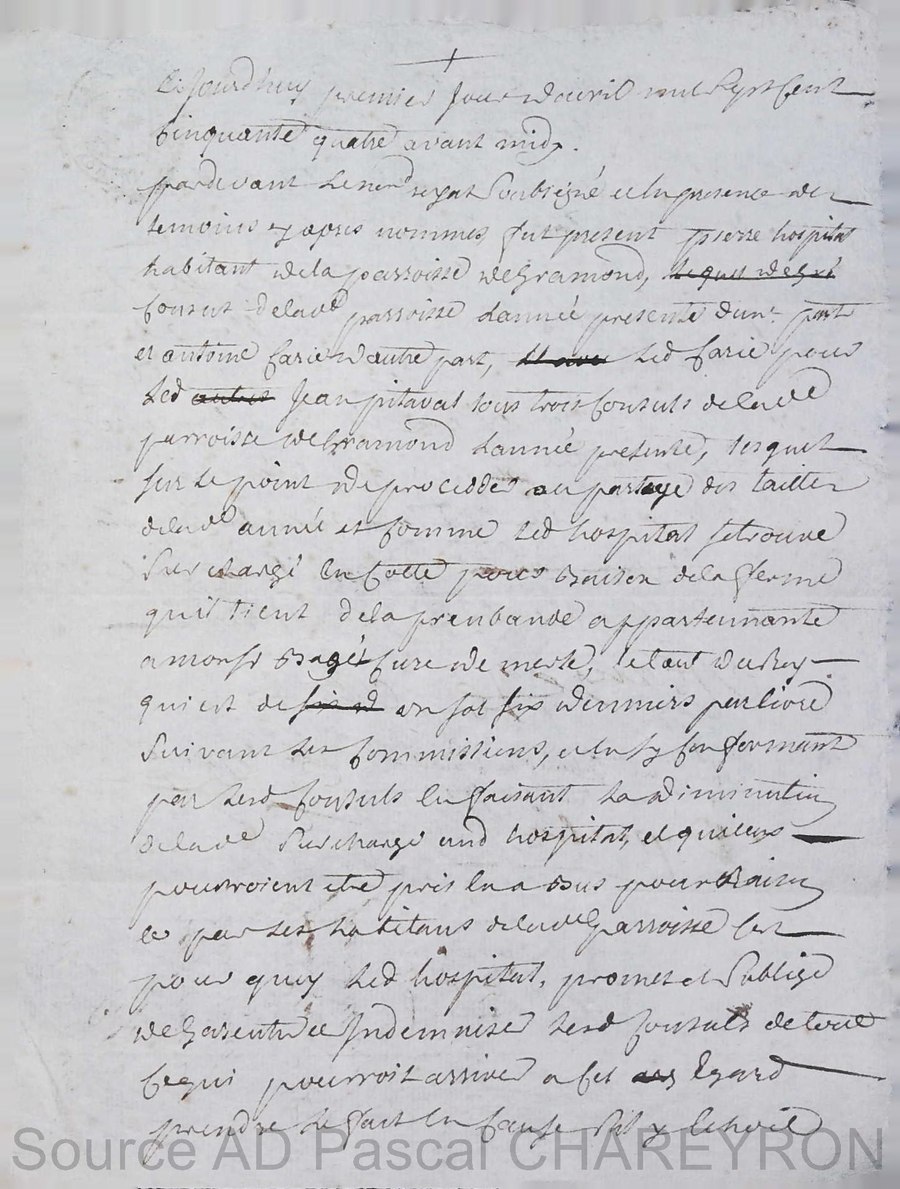 Cejourdhuy premier Jour d'avril mil sept Cent
Cinquante quatre avant midy.
pardevant Le nore royal Soubsigné et En presence de
temoins cy apres nommes, fut present pierre hospital
habitant de la parroisse de Gramond,
Consul de lade parroisse L'année presente d'une part
et antoine Carie d'autre part, Led Carie pour
Led Jean pitaval tous trois Consuls de lade
parroisse de Gramond L'année presente, lesquels
sur Le point de procedder au partage des tailles
de lade année et Comme Led hospital se trouve
Surchargé En Cotte pour Raison de la ferme
quil tient de la prenbande appartennante
a monsr Curé de le taut du Roy
qui est de un sol six denniers par livre
Suivant Les Commissions, et En sy Conformant
par Lesd Consuls En faisant La diminution
de lade Surcharge aud hospital, et quileurs
pourroient etre pris En a Bus pour Raison
ce par Les habitans de lade parroisse Cest
pour quoy Led hospital, promet et Soblige
de Garentir et Indemniser Lesd Consuls de tout
Ce qui pourroit arriver a Cet Egard
prendre Le fait En Cause Sil y Echoit
Source AD Pascal CHAREYRON